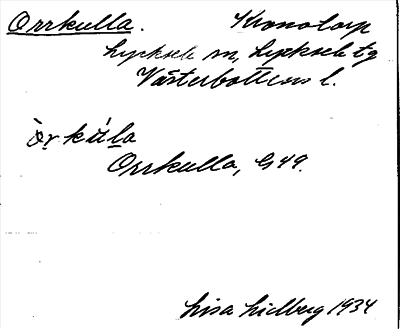 Orrkulla. Kronotorp
Lycksele sn, Lycksele tg
Västerbottens l.
òr kúla
Orrkulla, G49.
Lisa Lidberg 1934